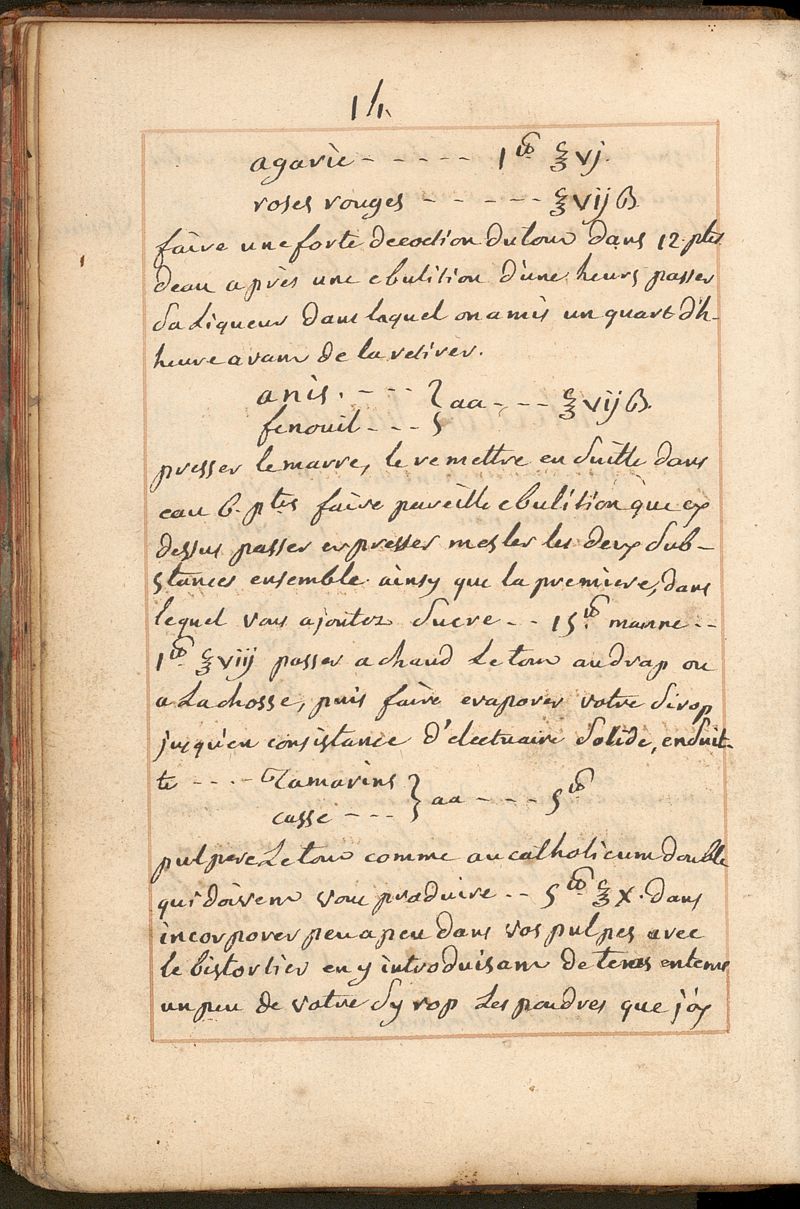 14.
agaric - - - - - 1 lb ℥ vj.
roses rouges - - - - - ℥ vij ß.
faire une forte decoction du tour dans 12. ptes
deau apres une ebulition d'une heurs passer
sa Liqueur dans laquel on a mis un quart d'h-
heure avam de la retirer.
anis. - - - } aa - - - ℥ vij ß.
fenouil - - - }
presser le marre, le remettre en suitte dans
eau 6. ptes faire pareille ebulition que cy
dessus passer expresser mesler les deux sub-
stances ensemble ainsy que la premiere, dans
lequel vous ajoutez sucre - - 15 lb. manne - -
1 lb. ℥ viij passer a chaud Le tour au drap ou
a La chosse, puis faire evaporer votre sirop
jusqu'en consistance d'electuaire solide, ensuit-
te - - - - Tamarins } aa - - - - 5 lb
casse - - - }
pulpere Le tour comme au catholicum double
qui doivem vous produire - - 5 lb ℥ x. dans
incorporer peu a peu dans vos pulpes avec
le bistortier en y introduisam de tems entems
un peu de votre syrop Les poudres que j'ay